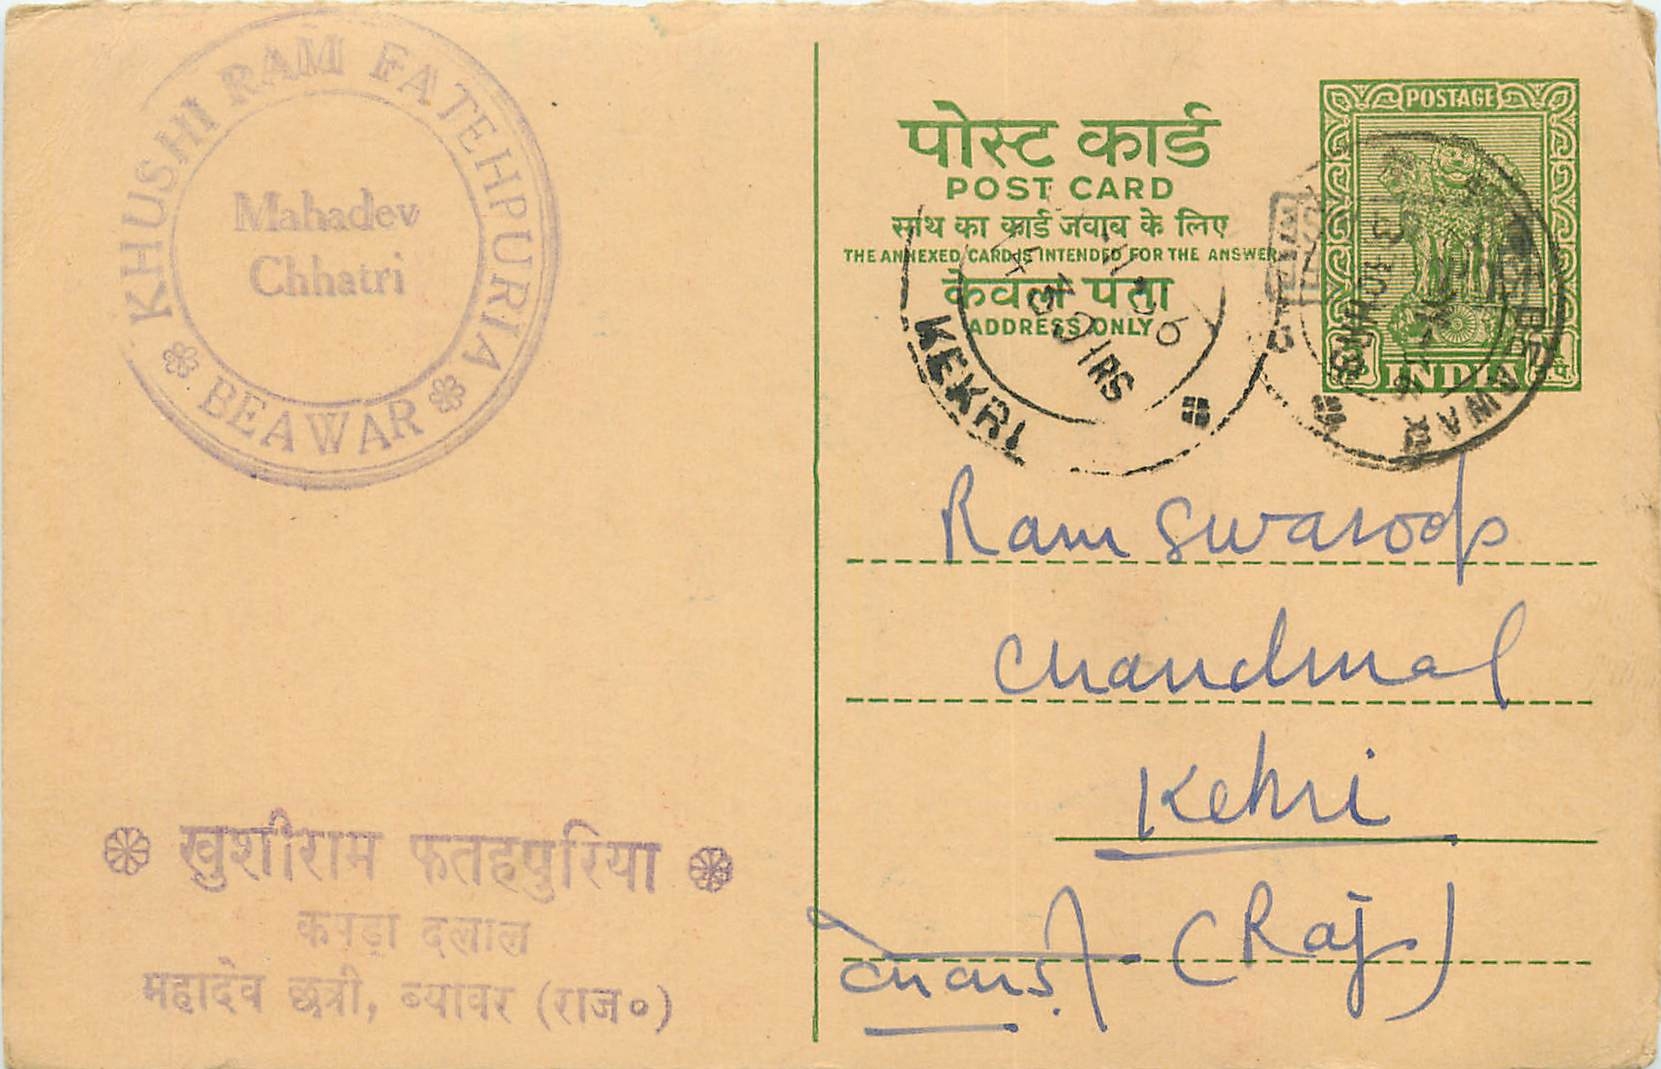 KHUSHI RAM FATEHPURIA
BEAWAR
Mahadev
Chhatri
खुशीराम फतहपुरिया
कपड़ा दलाल
महादेव छत्री, ब्यावर (राज०)
पोस्ट कार्ड
POST CARD
साथ का कार्ड जवाब के लिए
THE ANNEXED CARD IS INTENDED FOR THE ANSWER
केवल पता
ADDRESS ONLY
POSTAGE
INDIA
KEKRI
BEAWAR
Ram Swaroop
Chandmal
Kekri
(Raj)